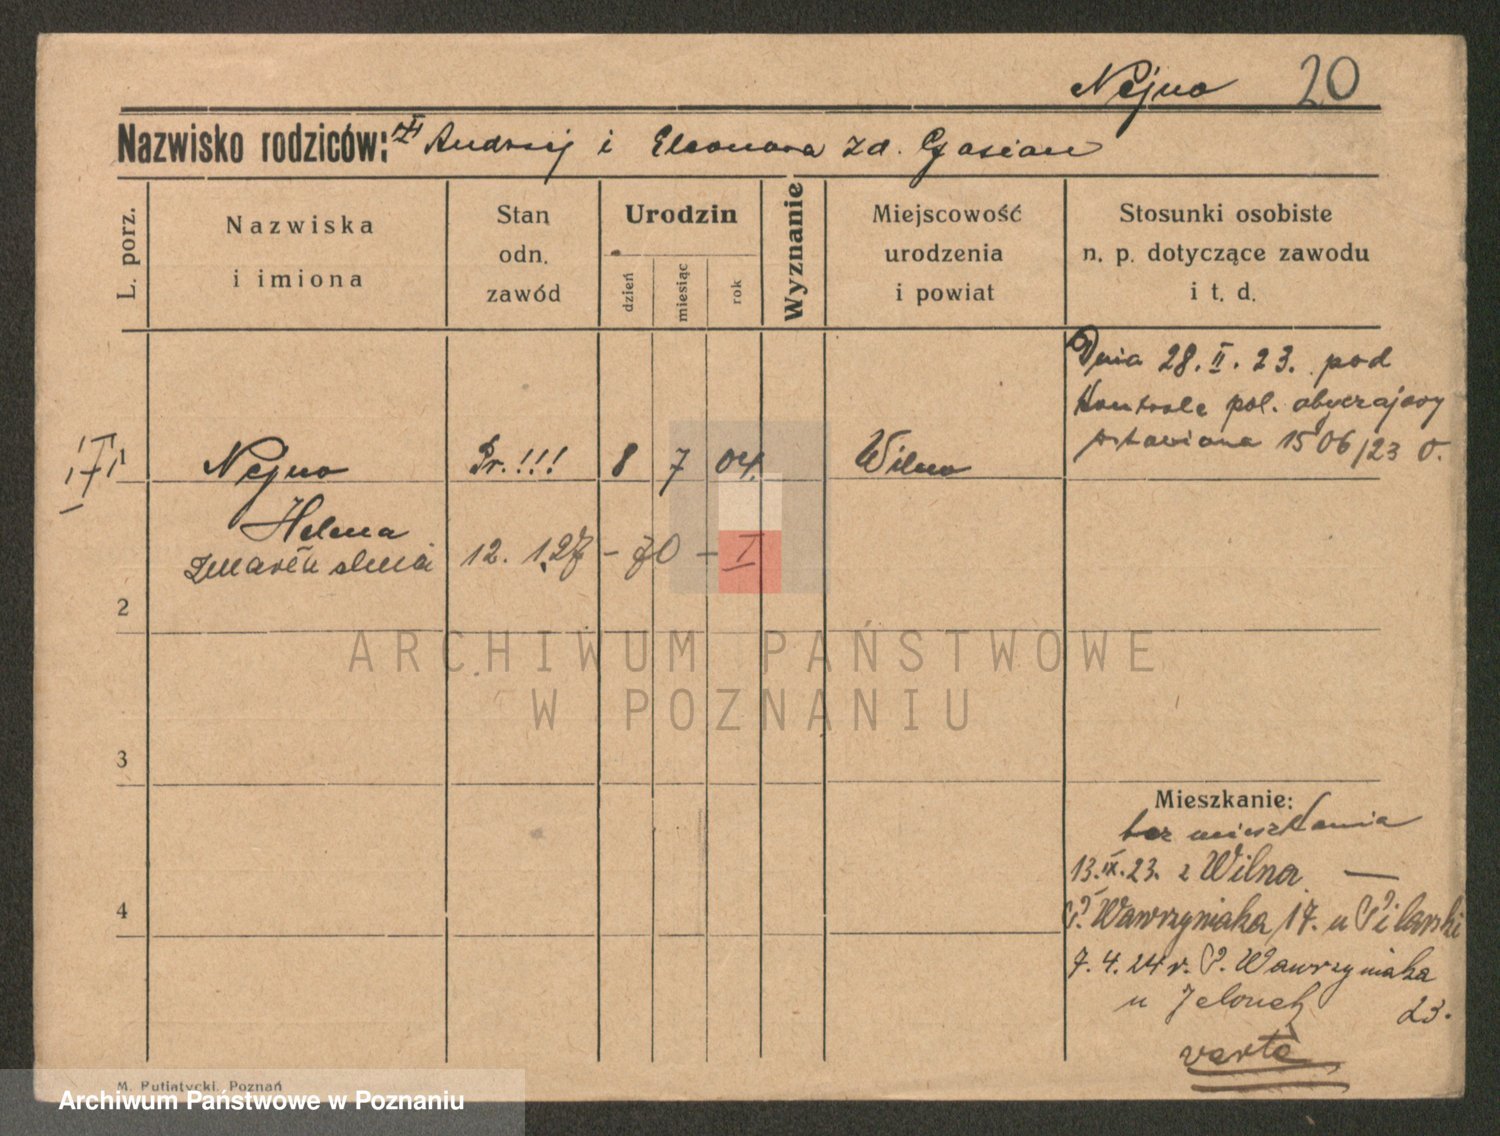 Nejno 20
Nazwisko rodziców: Andrzej i Eleonora zd. Gasian
L. porz.
Nazwiska
i imiona
Stan
odn.
zawód
Urodzin
dzień
miesiąc
rok
Wyznanie
Miejscowość
urodzenia
i powiat
Stosunki osobiste
n. p. dotyczące zawodu
i t. d.
Dnia 28. II. 23. pod
Kontrolę pol. obyczajowy
stawiona 1506/23 O.
1 Nejno Pr. !!! 8 7 04. Wilno
Helena
12. 1.27 - 70 - I
2
3
4
Mieszkanie:
bez mieszkania
13. IX. 23. z Wilna —
P. Wawrzyniaka 17. u Pilarski
7. 4. 24 r. P. Wawrzyniaka
u Jelonek 23.
verte
M. Putiatycki, Poznań
ARCHIWUM PAŃSTWOWE
W POZNANIU
Archiwum Państwowe w Poznaniu